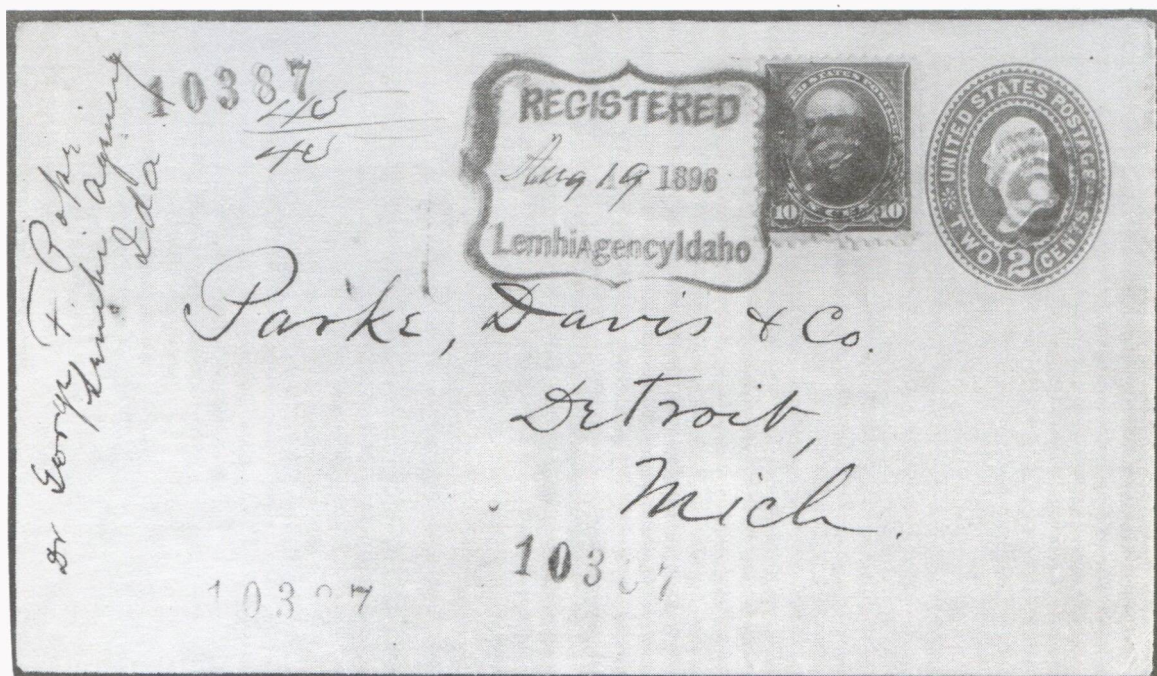 Dr George F Pope
Lemhi Agency
Ida
10387
45
45
REGISTERED
Aug 19 1896
Lemhi Agency Idaho
UNITED STATES POSTAGE
10 10
UNITED STATES POSTAGE
TWO 2 CENTS
Parke, Davis & Co.
Detroit,
Mich.
10387
10387